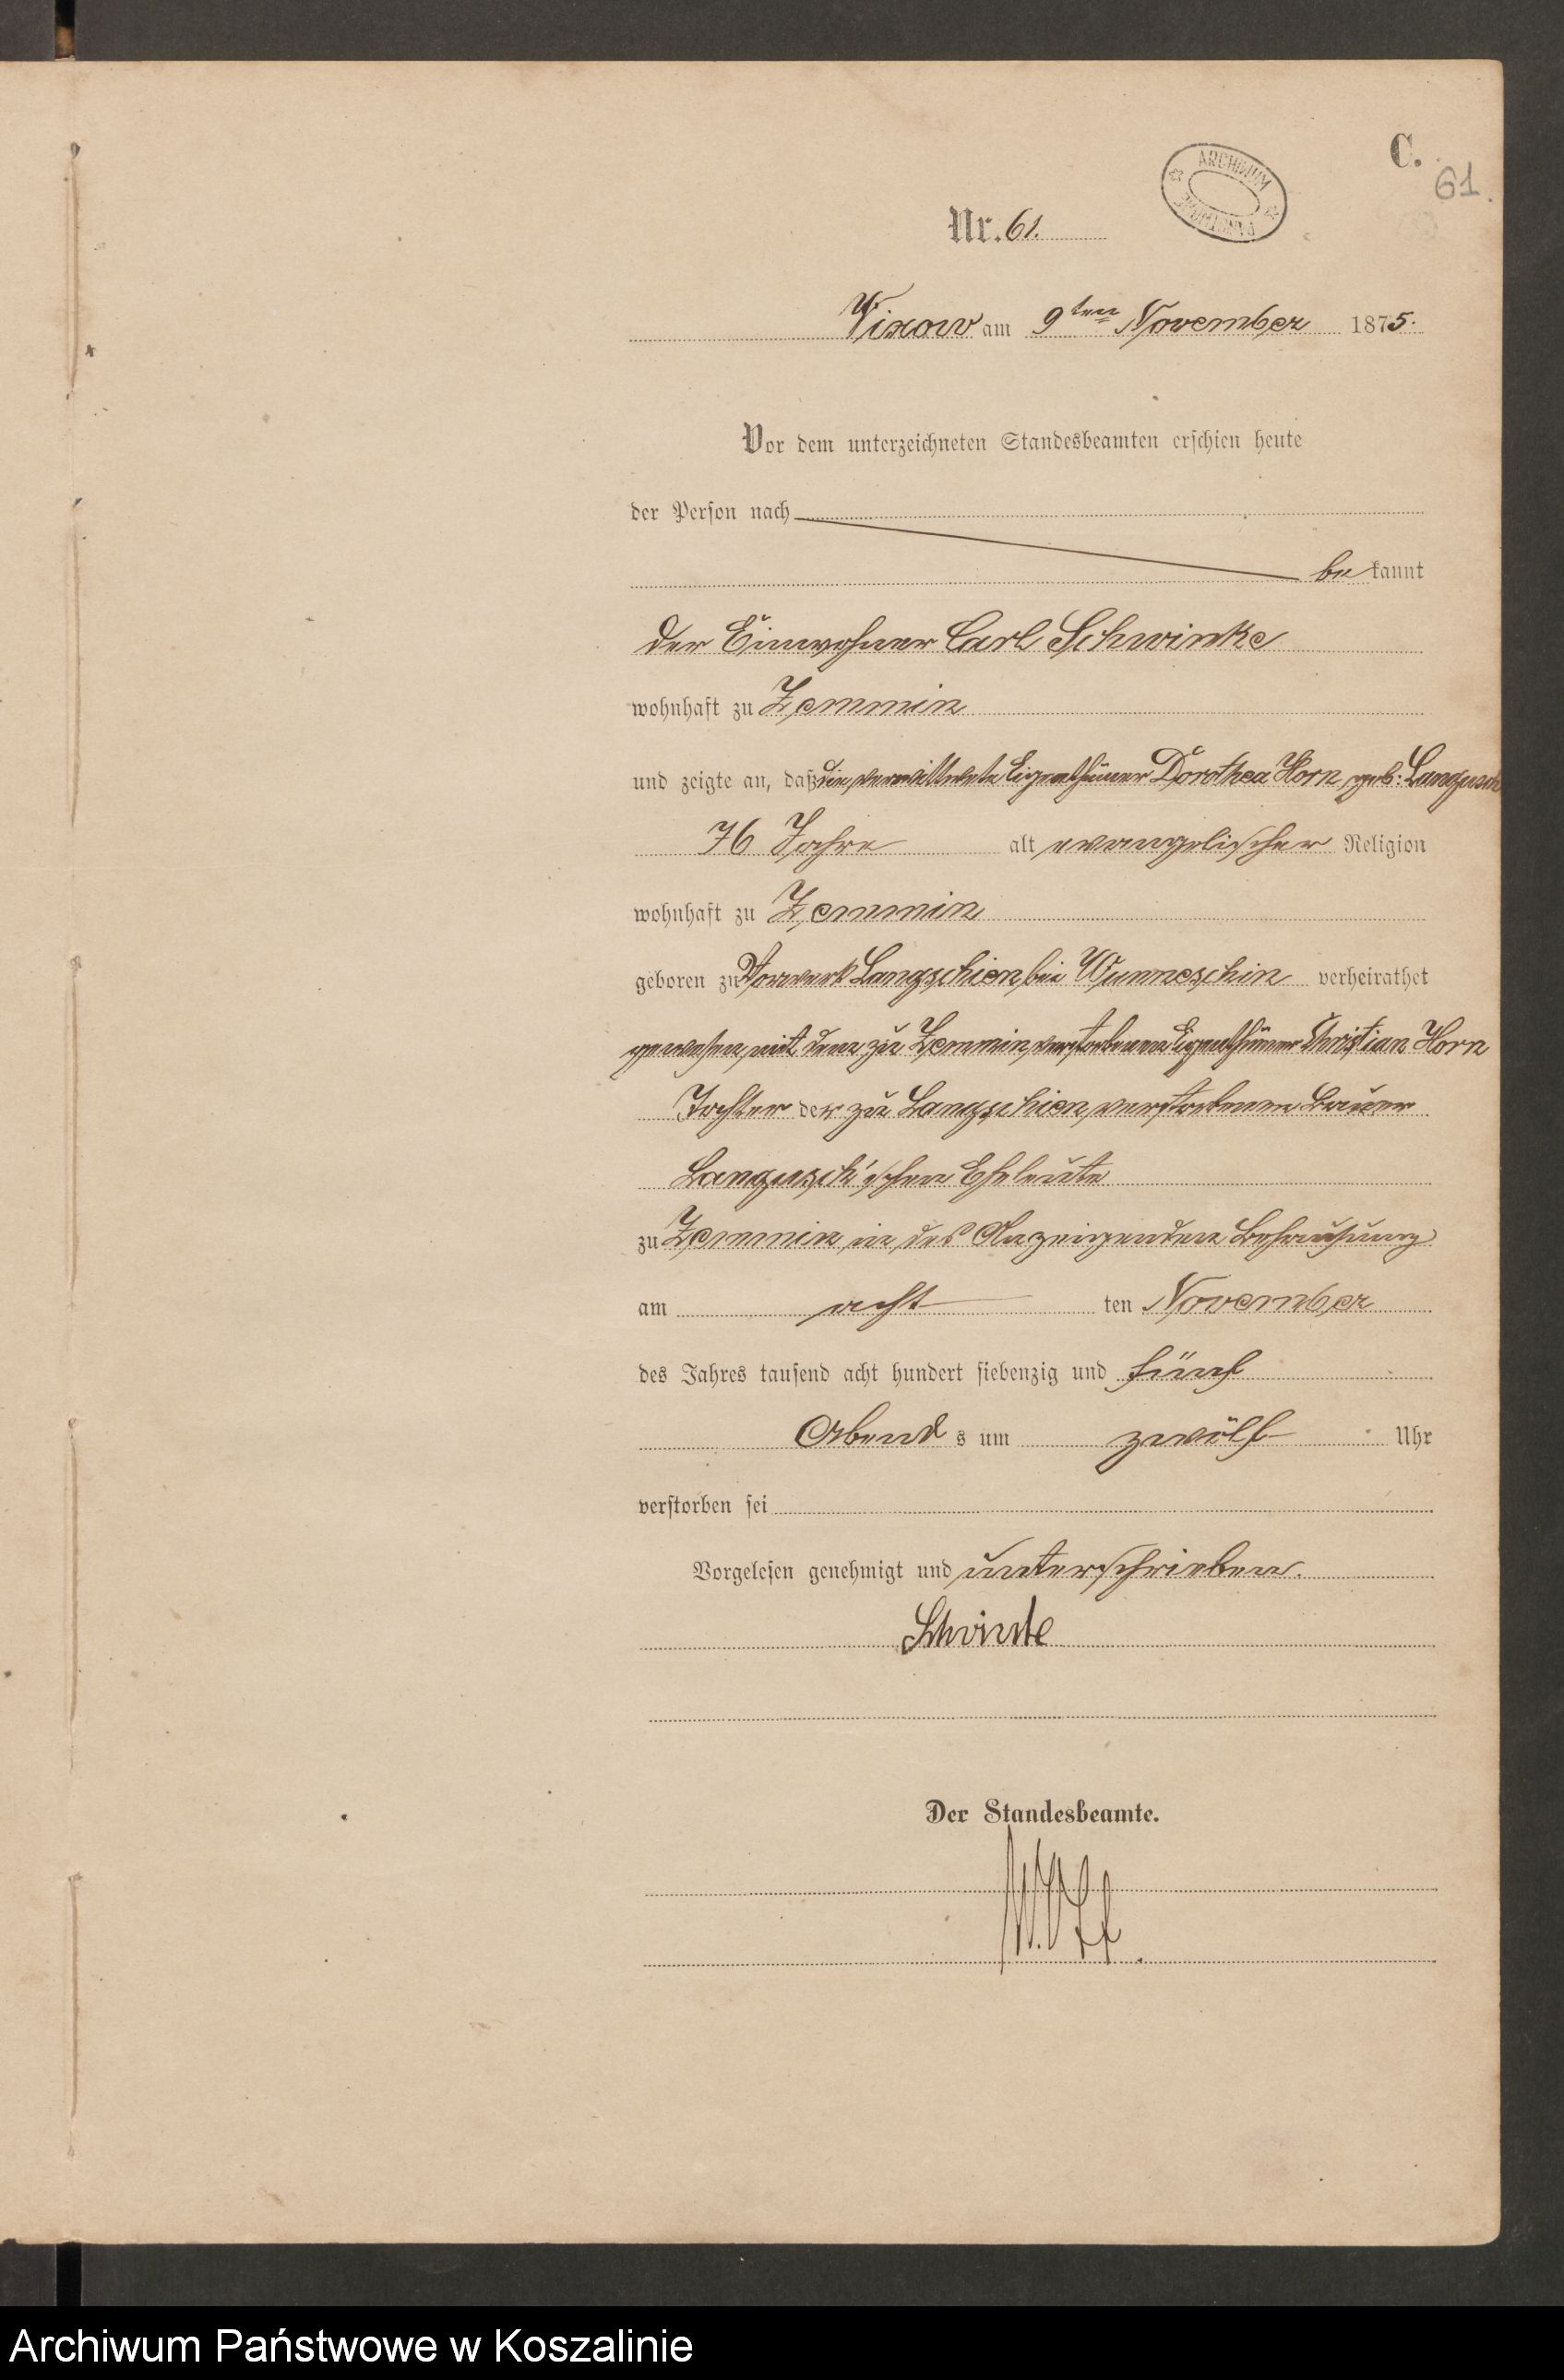 C.
61.
ARCHIWUM
PAŃSTWOWE
Nr. 61.
Vixow am 9ten November 1875.
Vor dem unterzeichneten Standesbeamten erschien heute
der Person nach
be kannt
der Einwohner Carl Schwinke
wohnhaft zu Zemmin
und zeigte an, daß die verwittwete Eigenthümer Dorothea Horn, geb: Langusch
76 Jahre alt evangelischer Religion
wohnhaft zu Zemmin
geboren zu Vorwerk Langschien bei Wunneschin verheirathet
gewesen mit dem zu Zemmin verstorbenen Eigenthümer Christian Horn
Tochter der zu Langschien verstorbenen Bauer
Langusch'schen Eheleute
zu Zemmin in des Anzeigenden Behausung
am acht ten November
des Jahres tausend acht hundert siebenzig und fünf
Abend s um zwölf Uhr
verstorben sei
Vorgelesen genehmigt und unterschrieben.
Schwinke
Der Standesbeamte.
Archiwum Państwowe w Koszalinie